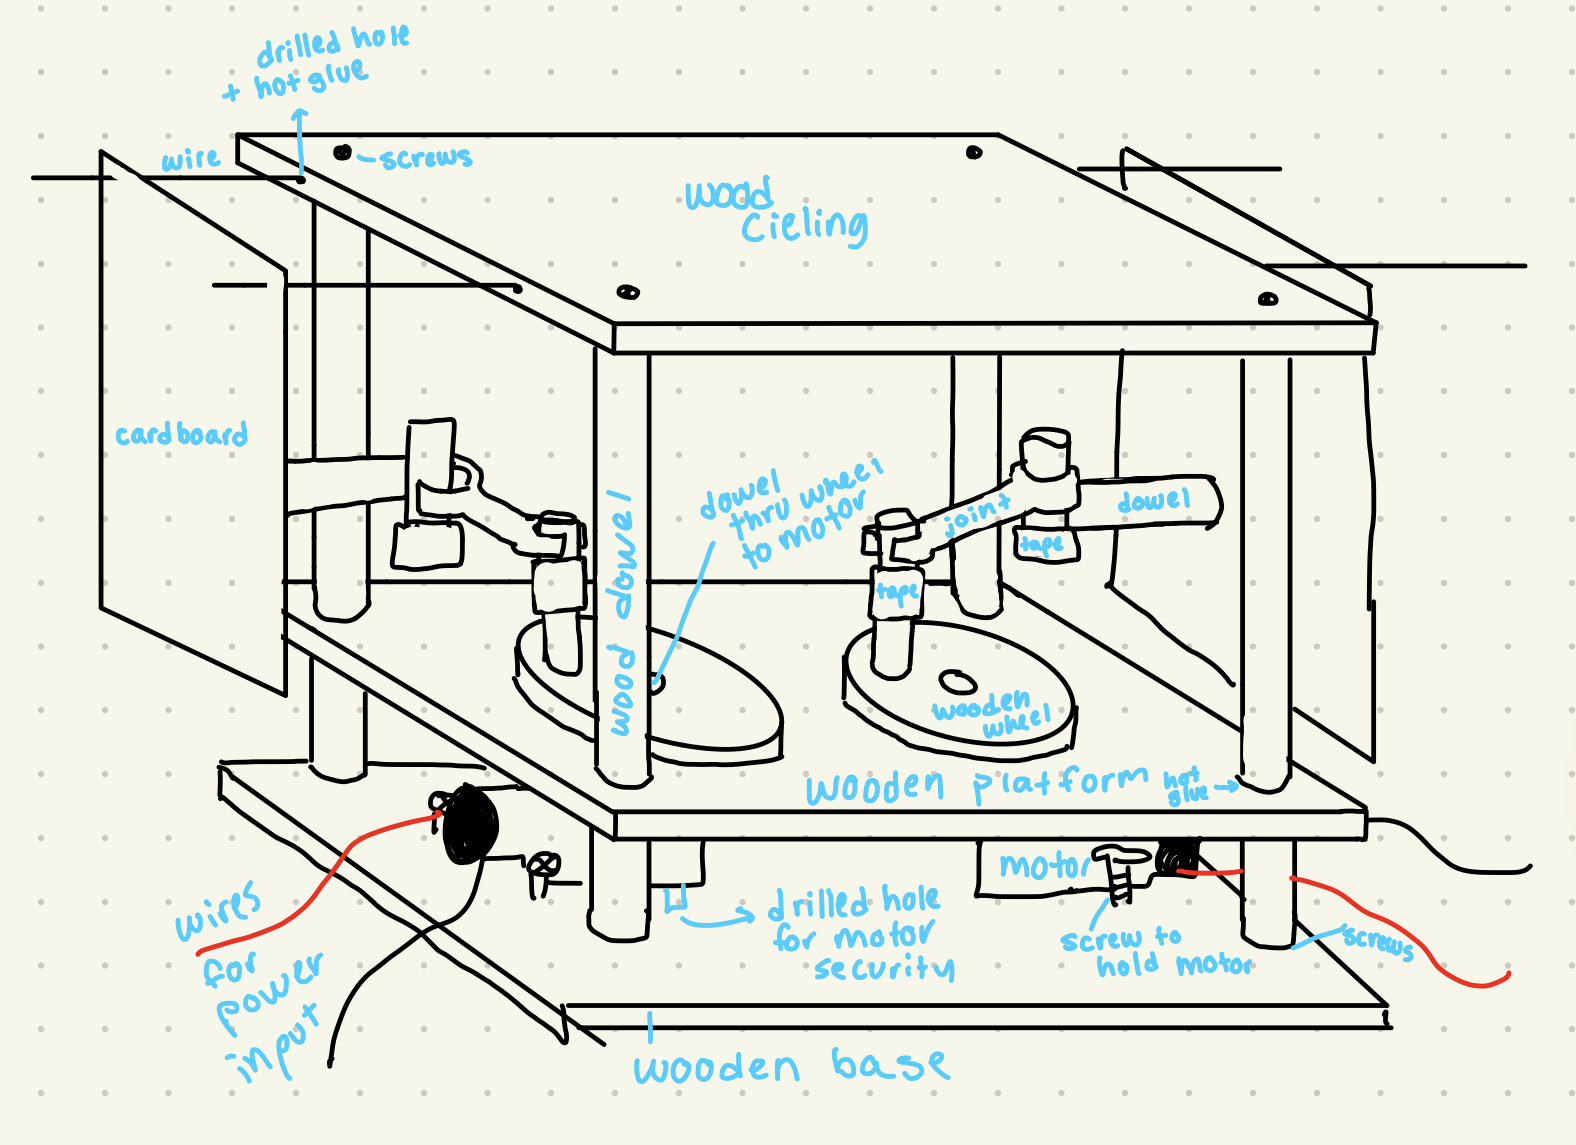 drilled hole
+ hot glue
wire
screws
wood
cieling
cardboard
wood dowel
dowel
thru wheel
to motor
joint
dowel
tape
tape
wooden
wheel
wooden platform
hot
glue
motor
wires
for
power
input
drilled hole
for motor
security
screw to
hold motor
screws
wooden base